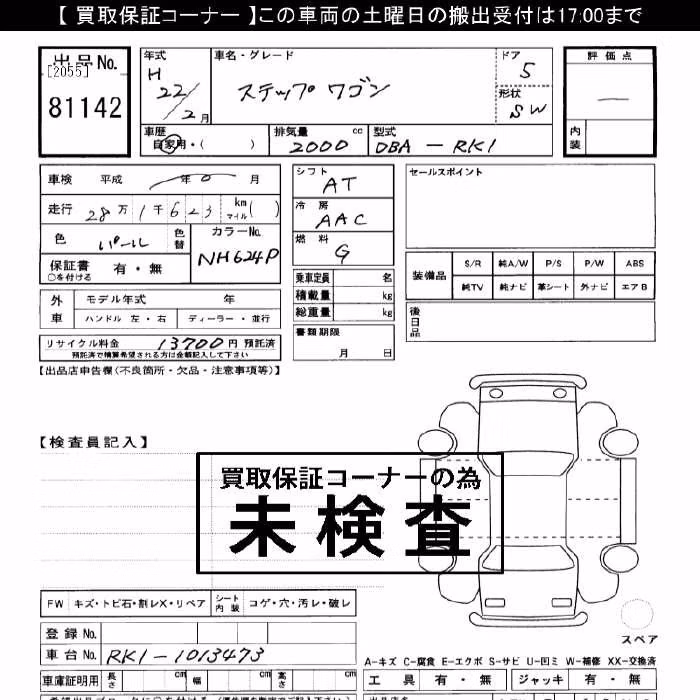 【 買取保証コーナー 】この車両の土曜日の搬出受付は17:00まで
出品No.
[2055]
81142
年式
H
22/2月
車名・グレード
ステップ ワゴン
ドア
5
形状
SW
評価点
―
内装
車歴
自家用・( )
排気量
2000
cc
型式
DBA - RK1
車検 平成 年 0 月
走行 28万1千623 km マイル( )
色 パール
色替
カラーNo.
NH624P
保証書
○を付ける
有・無
シフト
AT
冷房
AAC
燃料
G
乗車定員 名
積載量 kg
総重量 kg
書類期限
月 日
セールスポイント
装備品
S/R 純A/W P/S P/W ABS
純TV 純ナビ 革シート 外ナビ エアB
後日品
外車
モデル年式 年
ハンドル 左・右 ディーラー・並行
リサイクル料金 13700円 預託済
預託済で精算希望される方は金額記入して下さい
【出品店申告欄(不良箇所・欠品・注意事項等)】
【検査員記入】
買取保証コーナーの為
未検査
FW キズ・トビ石・割レX・リペア
シート内装 コゲ・穴・汚レ・破レ
登録No.
車台No. RK1-1013473
車庫証明用 長さ cm 幅 cm 高さ cm
スペア
A-キズ C-腐食 E-エクボ S-サビ U-凹ミ W-補修 XX-交換済
工具 有・無 ジャッキ 有・無